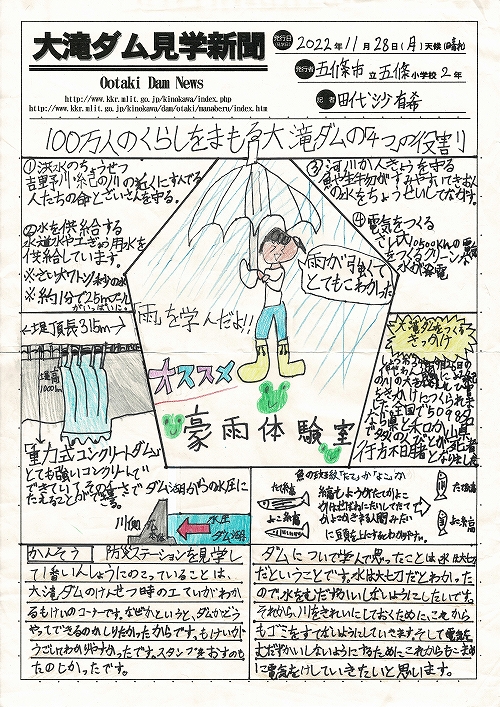 大滝ダム見学新聞
Ootaki Dam News
http://www.kkr.mlit.go.jp/kinokawa/index.php
http://www.kkr.mlit.go.jp/kinokawa/dam/otaki/manaberu/index.htm
発行日
2022年11月28日(月)天候(晴れ)
発行者 五條市立五條小学校2年
記者 田代沙有希
100万人のくらしをまもる大滝ダムの4つの役割り
①洪水のちょうせつ
吉野川・紀の川の近くにすんでる
人たちの命とざいさんを守る。
②水を供給する
水道水や工ぎょう用水を
供給しています。
※さい大7トン/秒の水
※約1分で25mプール
がいっぱいに。
③河川かんきょうを守る
魚や生き物がすみやすいできおん
の水をちょうせいしてながす。
④電気をつくる
さい大10500kwの電気
をつくるクリーンな
水力発電
雨が強くて
とてもこわかった
「雨」を学んだよ!!
オススメ
豪雨体験室
大滝ダムをつくる
きっかけ
堤頂長315m
堤高
100m
「重力式コンクリートダム」
とても強いコンクリートで
できていて、その重さでダム湖からの水圧に
たえることができる。
川側
水圧
ダム湖
魚の改紋「たて」か「よこ」か
たて糸高
よこ糸高
かんそう 防災ステーションを見学し
て1番いんしょうにのこっていることは、
大滝ダムのけんせつ時の工ていがわか
るもけいのコーナーです。なぜかというと、ダムがどう
やってできるのかしりたかったからです。もけいがう
ごいてわかりやすかったです。スタンプをおすのも
たのしかったです。
ダムについて学んで思ったことは水は大切
だということです。水は大切だとわかった
ので水をむだづかいしないようにしたいです。
それから、川をきれいにしておくために、これから
もゴミをすてないようにしていきます。そして電気を
むだづかいしないようにするためにこれからもこまめ
に電気をけしていきたいと思います。